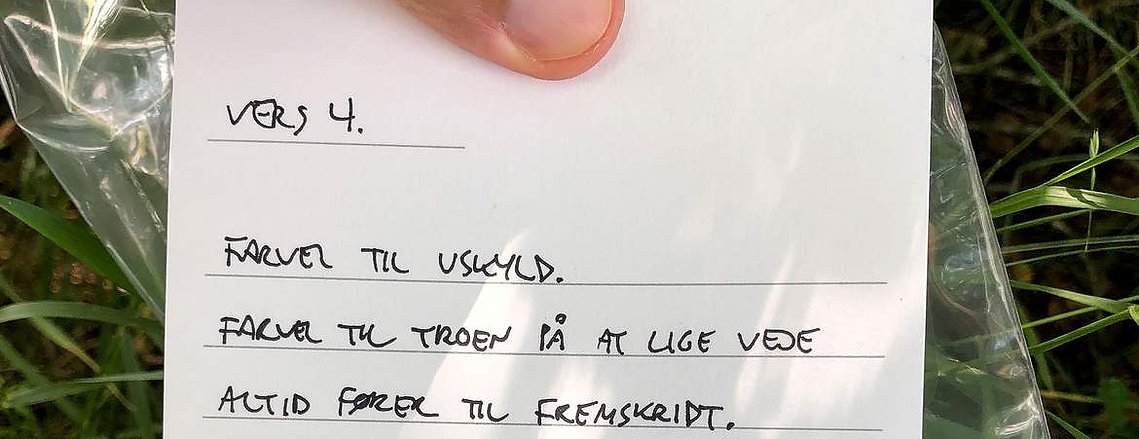 VERS 4.
FARVEL TIL USKYLD.
FARVEL TIL TROEN PÅ AT LIGE VEJE
ALTID FØRER TIL FREMSKRIDT.